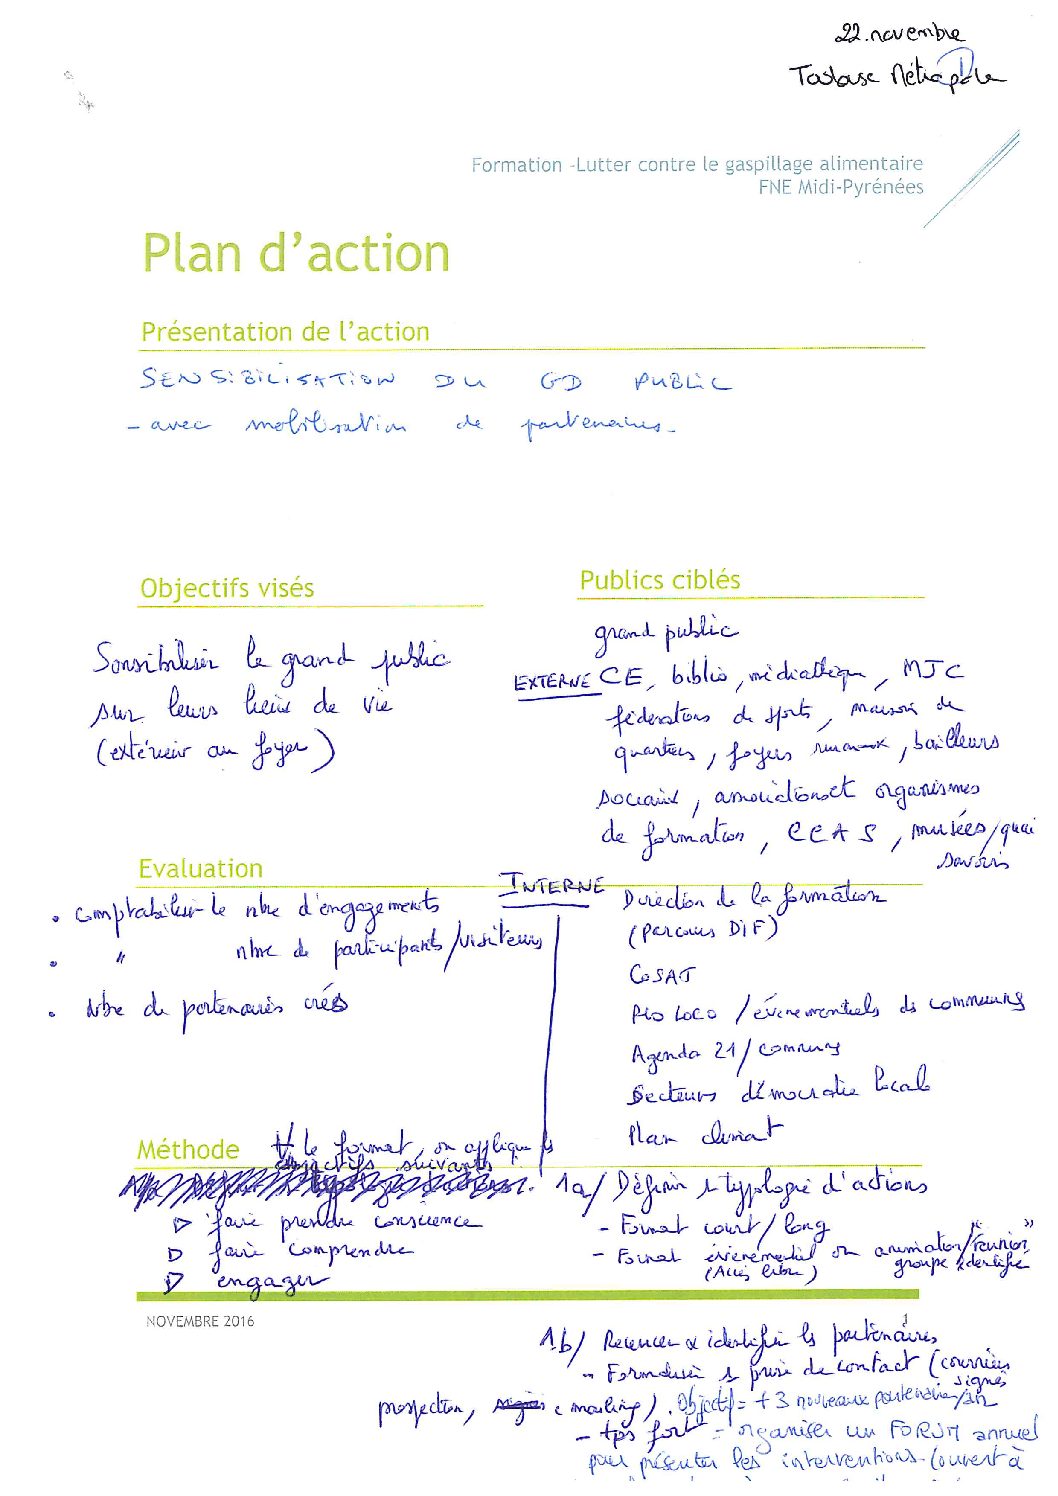 22.novembre
Toulouse Métropole
Formation -Lutter contre le gaspillage alimentaire
FNE Midi-Pyrénées
Plan d'action
Présentation de l'action
SENSIBILISATION DU GD PUBLIC
- avec mobilisation de partenaires -
Objectifs visés
Sensibiliser le grand public
sur leurs lieux de vie
(extérieur au foyer)
Publics ciblés
grand public
EXTERNE CE, biblio, médiathèque, MJC
fédérations de sports, maisons de
quartiers, foyers ruraux, bailleurs
sociaux, associations et organismes
de formation, CCAS, musées/quai
savoirs
Evaluation
• Comptabiliser le nbre d'engagements
• " nbre de participants/visiteurs
• Nbre de partenariats créés
INTERNE
Direction de la formation
(Parcours DIF)
COSAT
Pto Loco / évènementiels des communes
Agenda 21 / communes
Secteurs démocratie locale
Plan climat
Méthode
le format, on applique les
objectifs suivants
▷ faire prendre conscience
▷ faire comprendre
▷ engager
1a/ Définir 1 typologie d'actions
- Format court / long
- Format évènementiel ou animation/"réunion"
(Accès libre) groupe identifié
NOVEMBRE 2016
1
1b/ Recenser & identifier les partenaires
- Formaliser 1 prise de contact (courriers
signés
prospection, mailing). Objectif = + 3 nouveaux partenaires/an
- tps fort - organiser un FORUM annuel
pour présenter les interventions (ouvert à